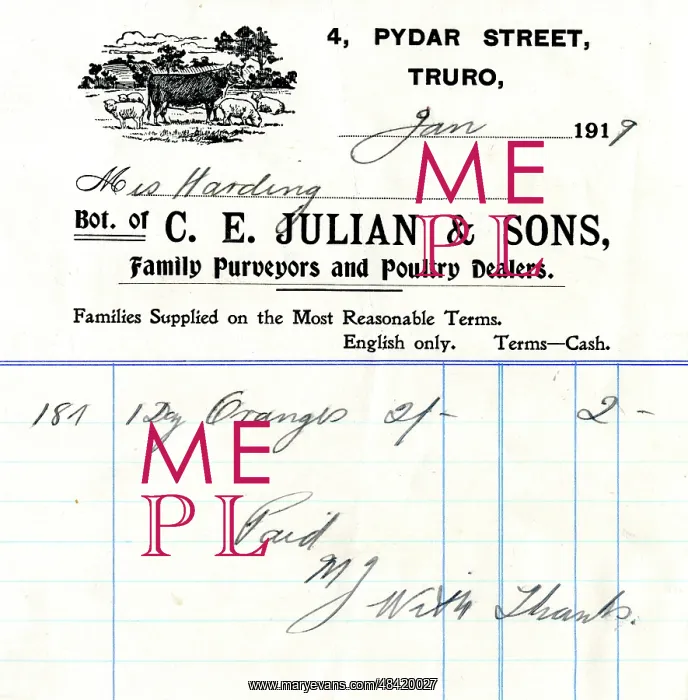 4, PYDAR STREET,
TRURO,
Jan 1919
Mrs Harding
Bot. of C. E. JULIAN & SONS,
Family Purveyors and Poultry Dealers.
Families Supplied on the Most Reasonable Terms.
English only. Terms—Cash.
1 Dz Oranges 2/- 2 -
Paid
With Thanks.
ME
PL
ME
PL
www.maryevans.com/48420027